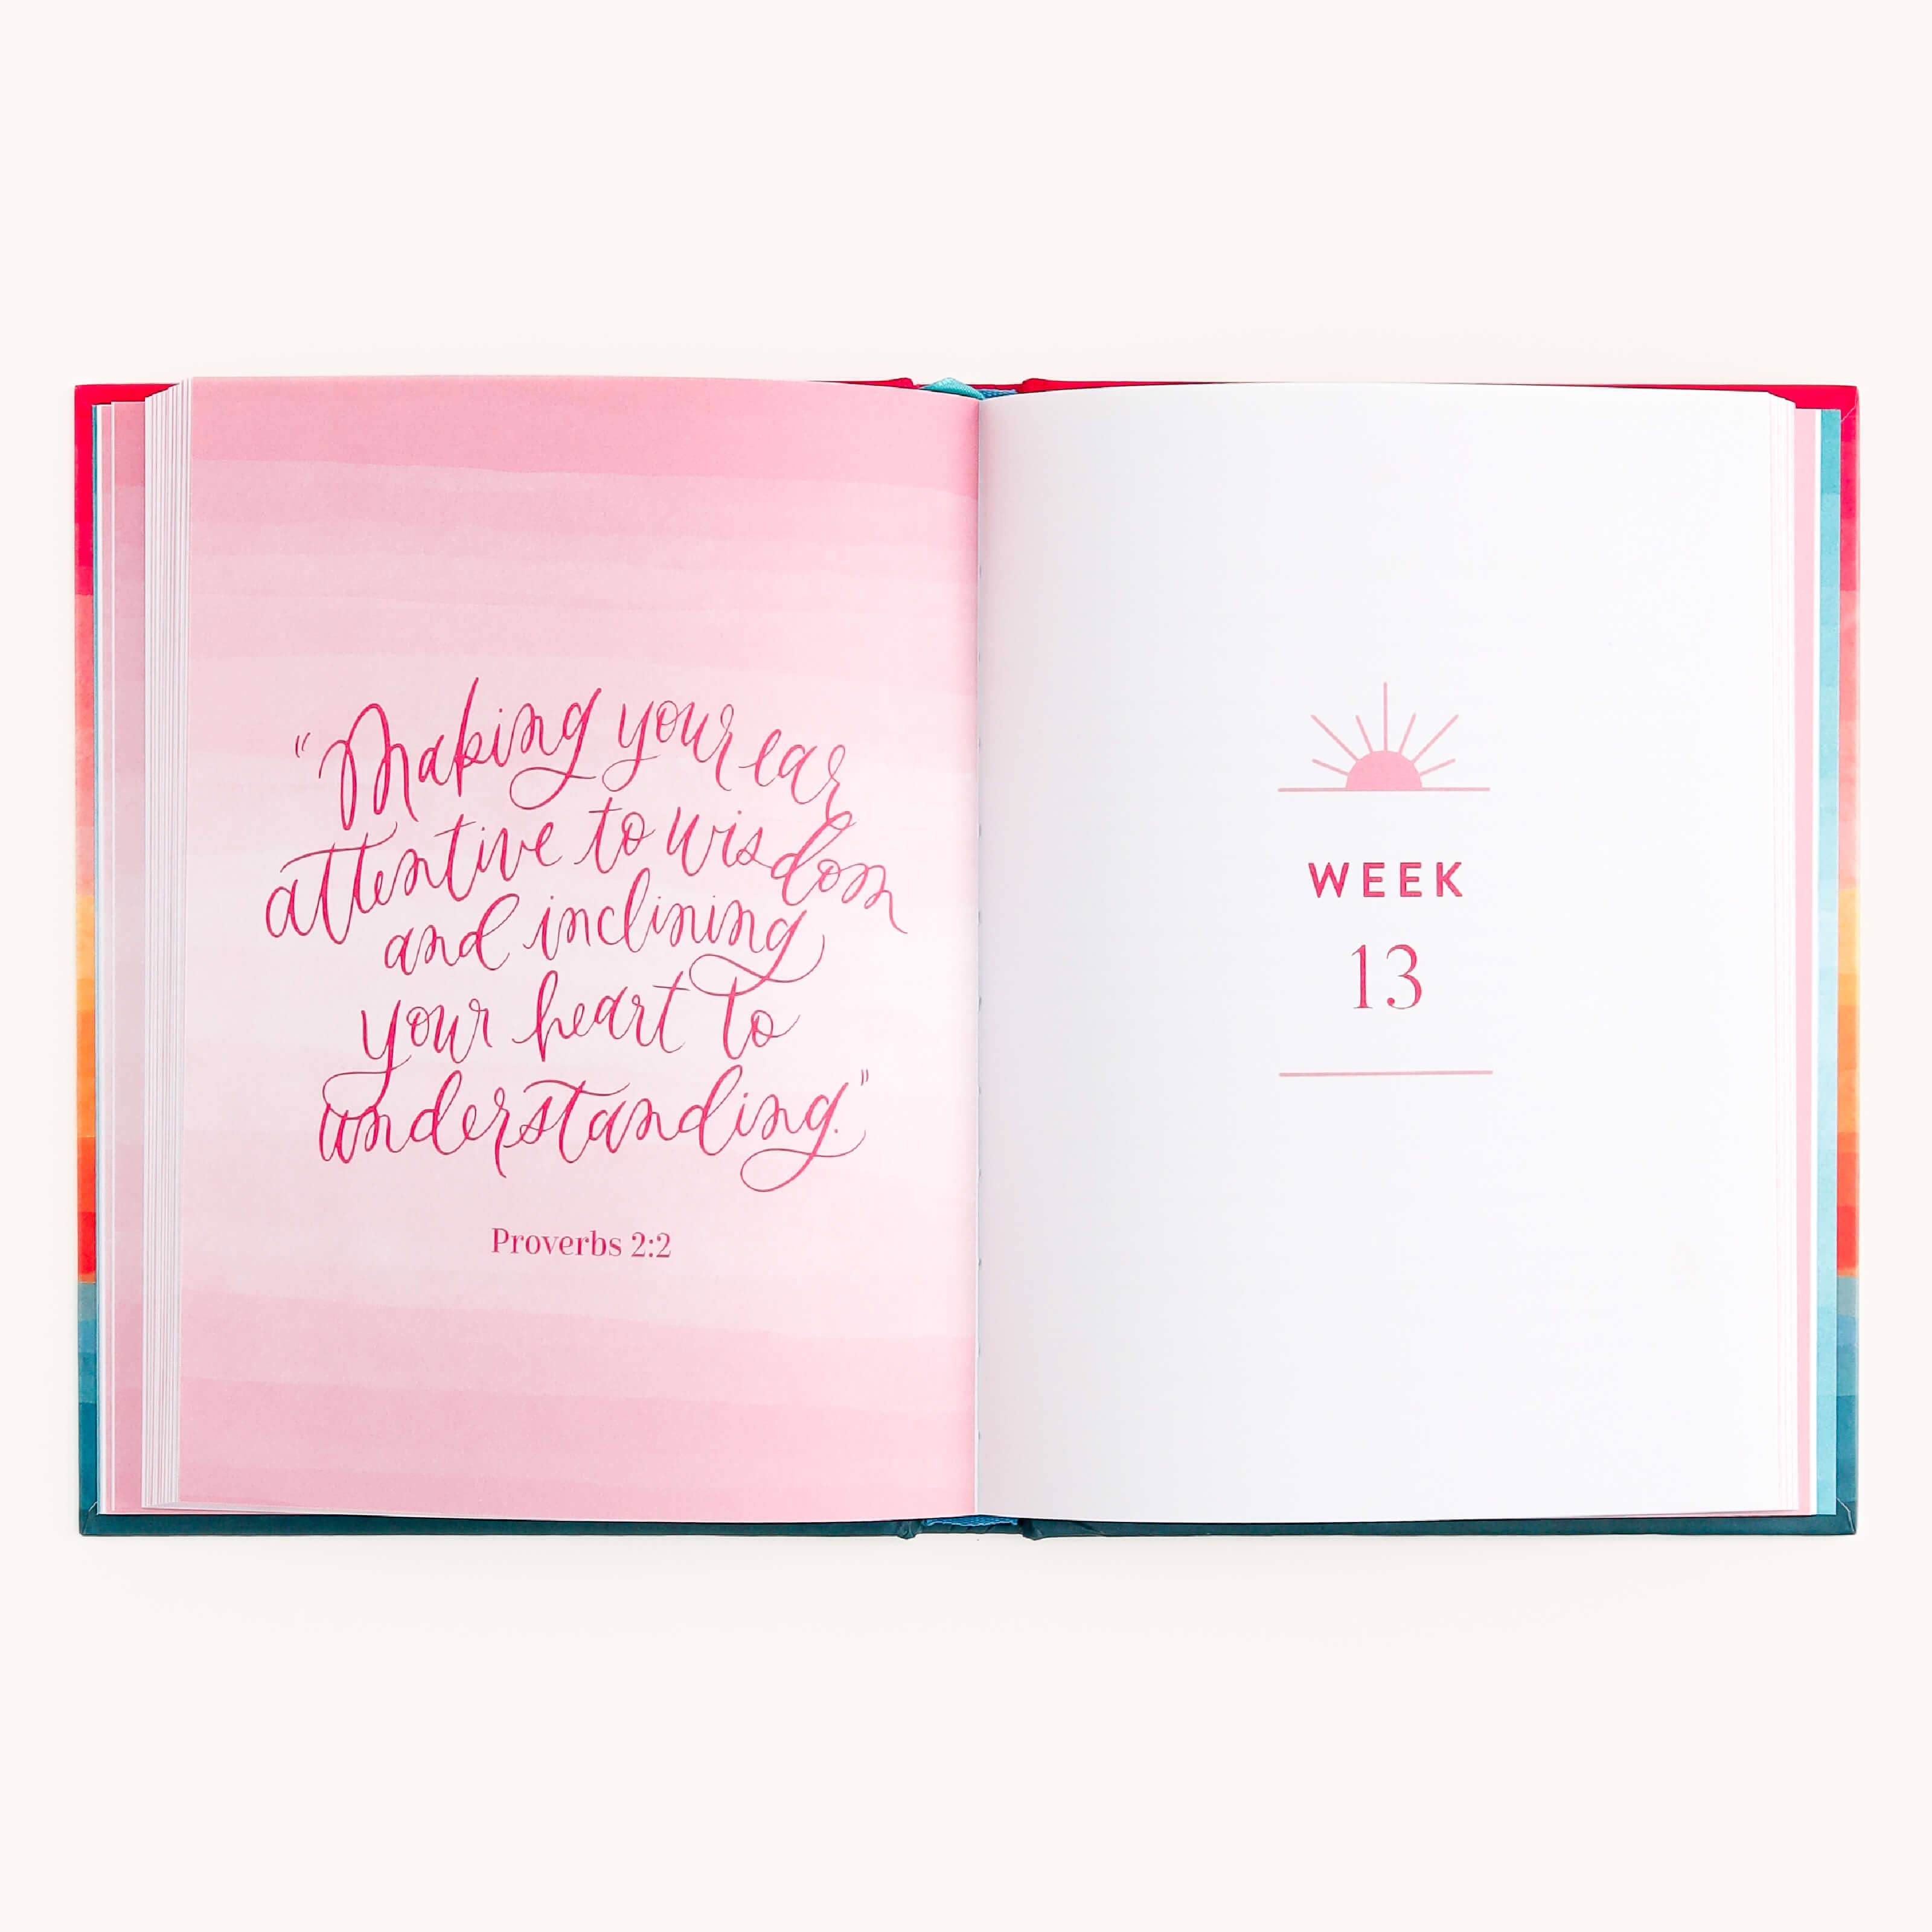 "Making your ear
attentive to wisdom
and inclining
your heart to
understanding."
Proverbs 2:2
WEEK
13